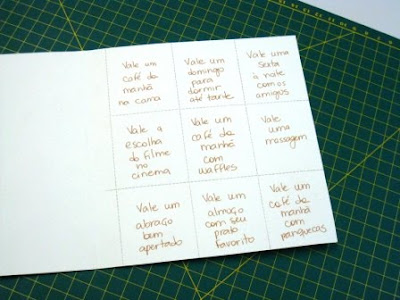 Vale um
café da
manhã
na cama
Vale um
domingo
para
dormir
até tarde
Vale uma
sexta
à noite
com os
amigos
Vale a
escolha
do filme
no
cinema
Vale um
café da
manhã
com
waffles
Vale
uma
massagem
Vale um
abraço
bem
apertado
Vale um
almoço
com seu
prato
favorito
Vale um
café da
manhã
com
panquecas